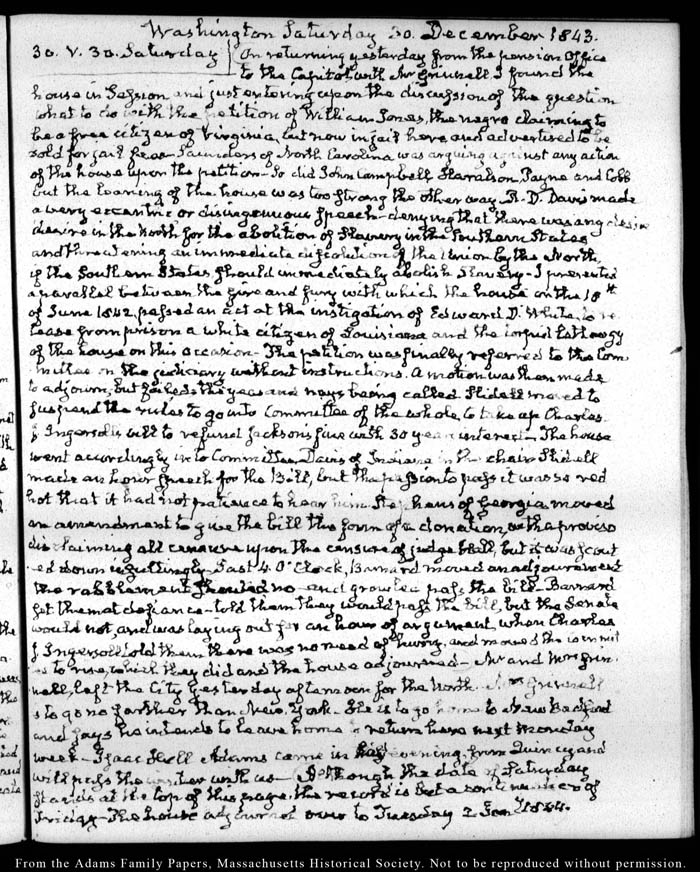 Washington Saturday 30. December 1843.
30. V. 30. Saturday
On returning yesterday from the pension Office
to the Capitol, with Mr Grinnell I found the
house in Session and just entering upon the discussion of the question
what to do with the petition of William Jones, the negro claiming to
be a free citizen of Virginia, but now in jail here and advertised to be
sold for jail fees. Saunders of North Carolina was arguing against any action
of the house upon the petition - So did John Campbell, Haralson, Payne and Cobb
but the leaning of the house was too strong the other way. R. D. Davis made
a very eccentric or disingenuous speech - denying that there was any desire
desire in the North for the abolition of Slavery in the Southern States
and threatening an immediate dissolution of the Union by the North,
if the Southern States should immediately abolish Slavery - I presented
a parallel between the fire and fury with which the house on the 18th
of June 1842. passed an act at the instigation of Edward D. White, to re
lease from prison a white citizen of Louisiana and the torpid lethargy
of the house on this occasion - The petition was finally referred to the Com
mittee on the judiciary without instructions. A motion was then made
to adjourn, but failed the yeas and nays being called. Slidell moved to
suspend the rules to go into Committee of the whole, to take up Charles
J. Ingersoll's bill to refund Jackson's fine with 30 years interest - The house
went accordingly into Committee, Davis of Indiana in the chair Slidell
made an hour speech for the Bill, but the passion to pass it was so red
hot that it had not patience to hear him. Stephens of Georgia moved
an amendment to give the bill the form of a donation, or the proviso
disclaiming all censure upon the censure of judge Hall, but it was scout
ed down insultingly. Past 4. O'Clock, Barnard moved an adjournment
the rabblement shouted no - and growled pass the bill - Barnard
set them at defiance - told them they would pass the bill, but the Senate
would not, and was laying out for an hour of argument, when Charles
J Ingersoll told them there was no need of hurry, and moved the committ
ee to rise, which they did and the house adjourned - Mr and Mrs Grin
nell, left the City yesterday afternoon for the North. Mrs Grinnell
is to go no farther than New York - He is to go home to New Bedford
and says he intends to leave home to return here next Monday
week - Isaac Hull Adams came in this evening from Quincy and
will pass the winter with us - Although the date of Saturday
stands at the top of this page, this record is but a continuance of
Friday - The house adjourned over to Tuesday 2 Jany 1844.
From the Adams Family Papers, Massachusetts Historical Society. Not to be reproduced without permission.